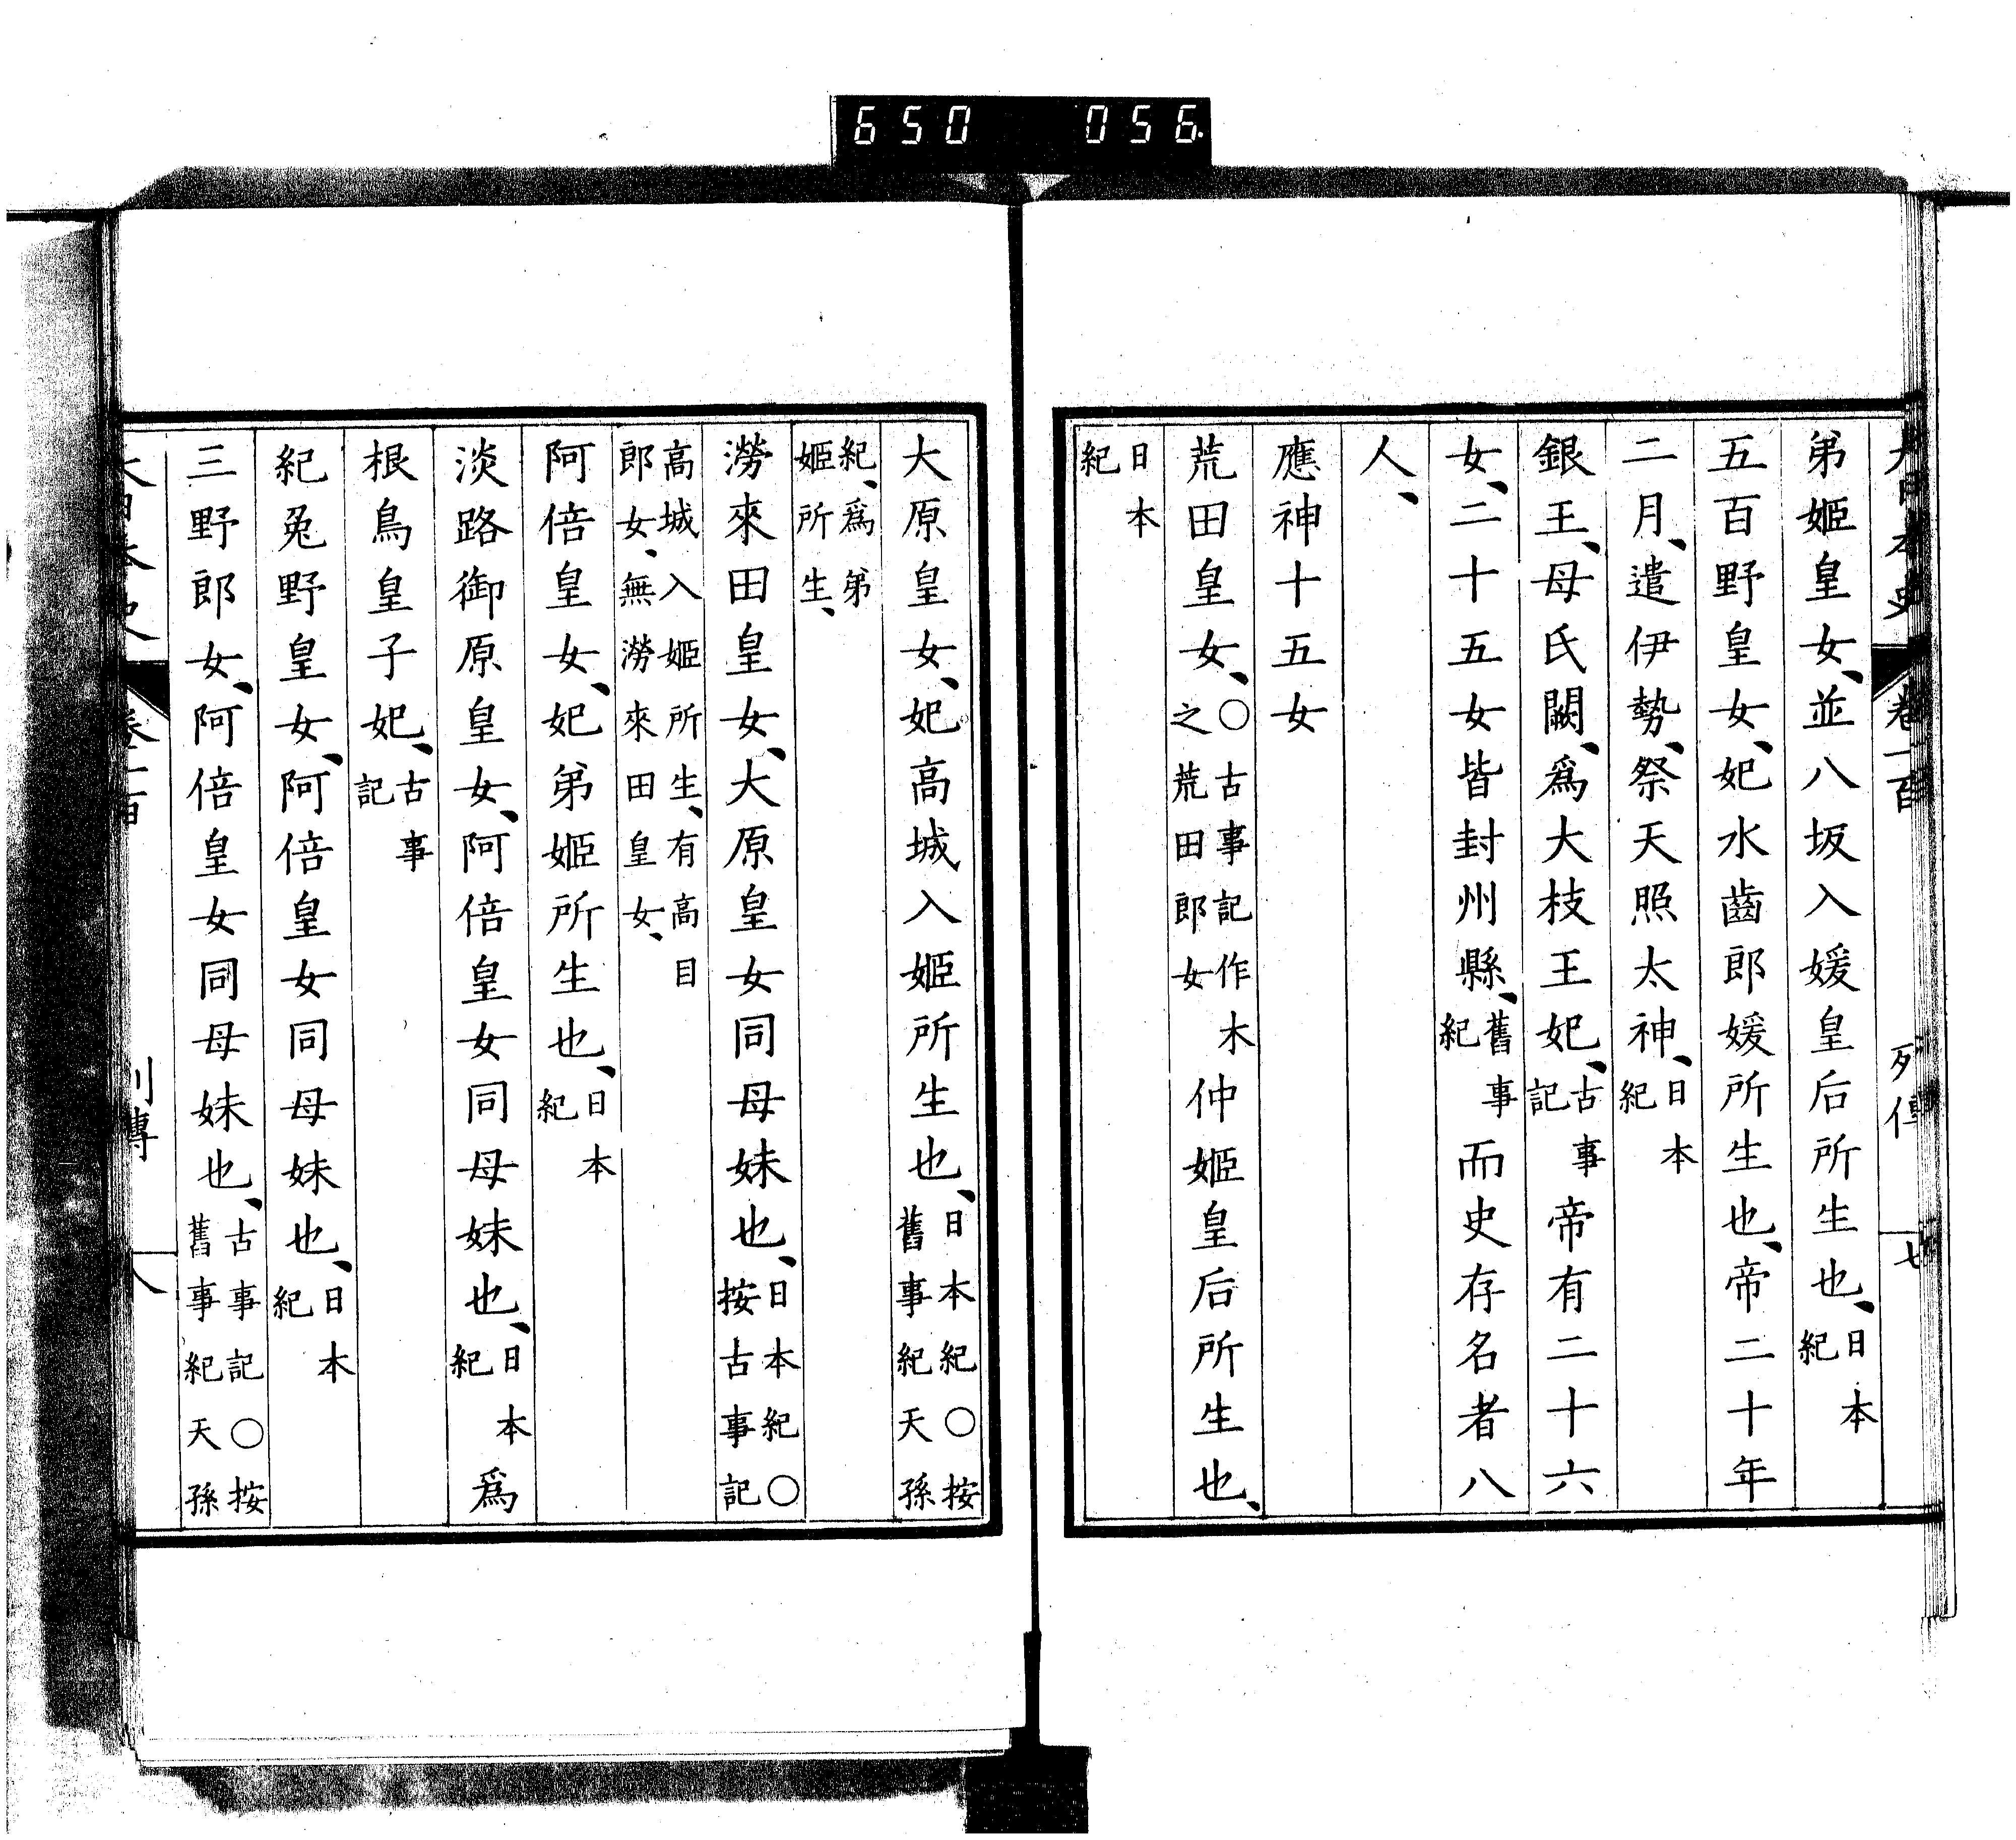 650 056
大日本史 卷一百 列傳 七
弟姬皇女、並八坂入媛皇后所生也、日本紀
五百野皇女、妃水齒郎媛所生也、帝二十年
二月、遣伊勢、祭天照太神、日本紀
銀王、母氏闕、爲大枝王妃、古事記帝有二十六
女、二十五女皆封州縣、舊事紀而史存名者八
人、
應神十五女
荒田皇女、○古事記作木之荒田郎女仲姬皇后所生也、
日本紀
大原皇女、妃高城入姬所生也、日本紀○按舊事紀天孫
紀、爲弟姬所生、
澇來田皇女、大原皇女同母妹也、日本紀○按古事記
高城入姬所生、有高目郎女、無澇來田皇女、
阿倍皇女、妃弟姬所生也、日本紀
淡路御原皇女、阿倍皇女同母妹也、日本紀爲
根鳥皇子妃、古事記
紀兎野皇女、阿倍皇女同母妹也、日本紀
三野郎女、阿倍皇女同母妹也、古事記○按舊事紀天孫
大日本史 卷一百 列傳 八